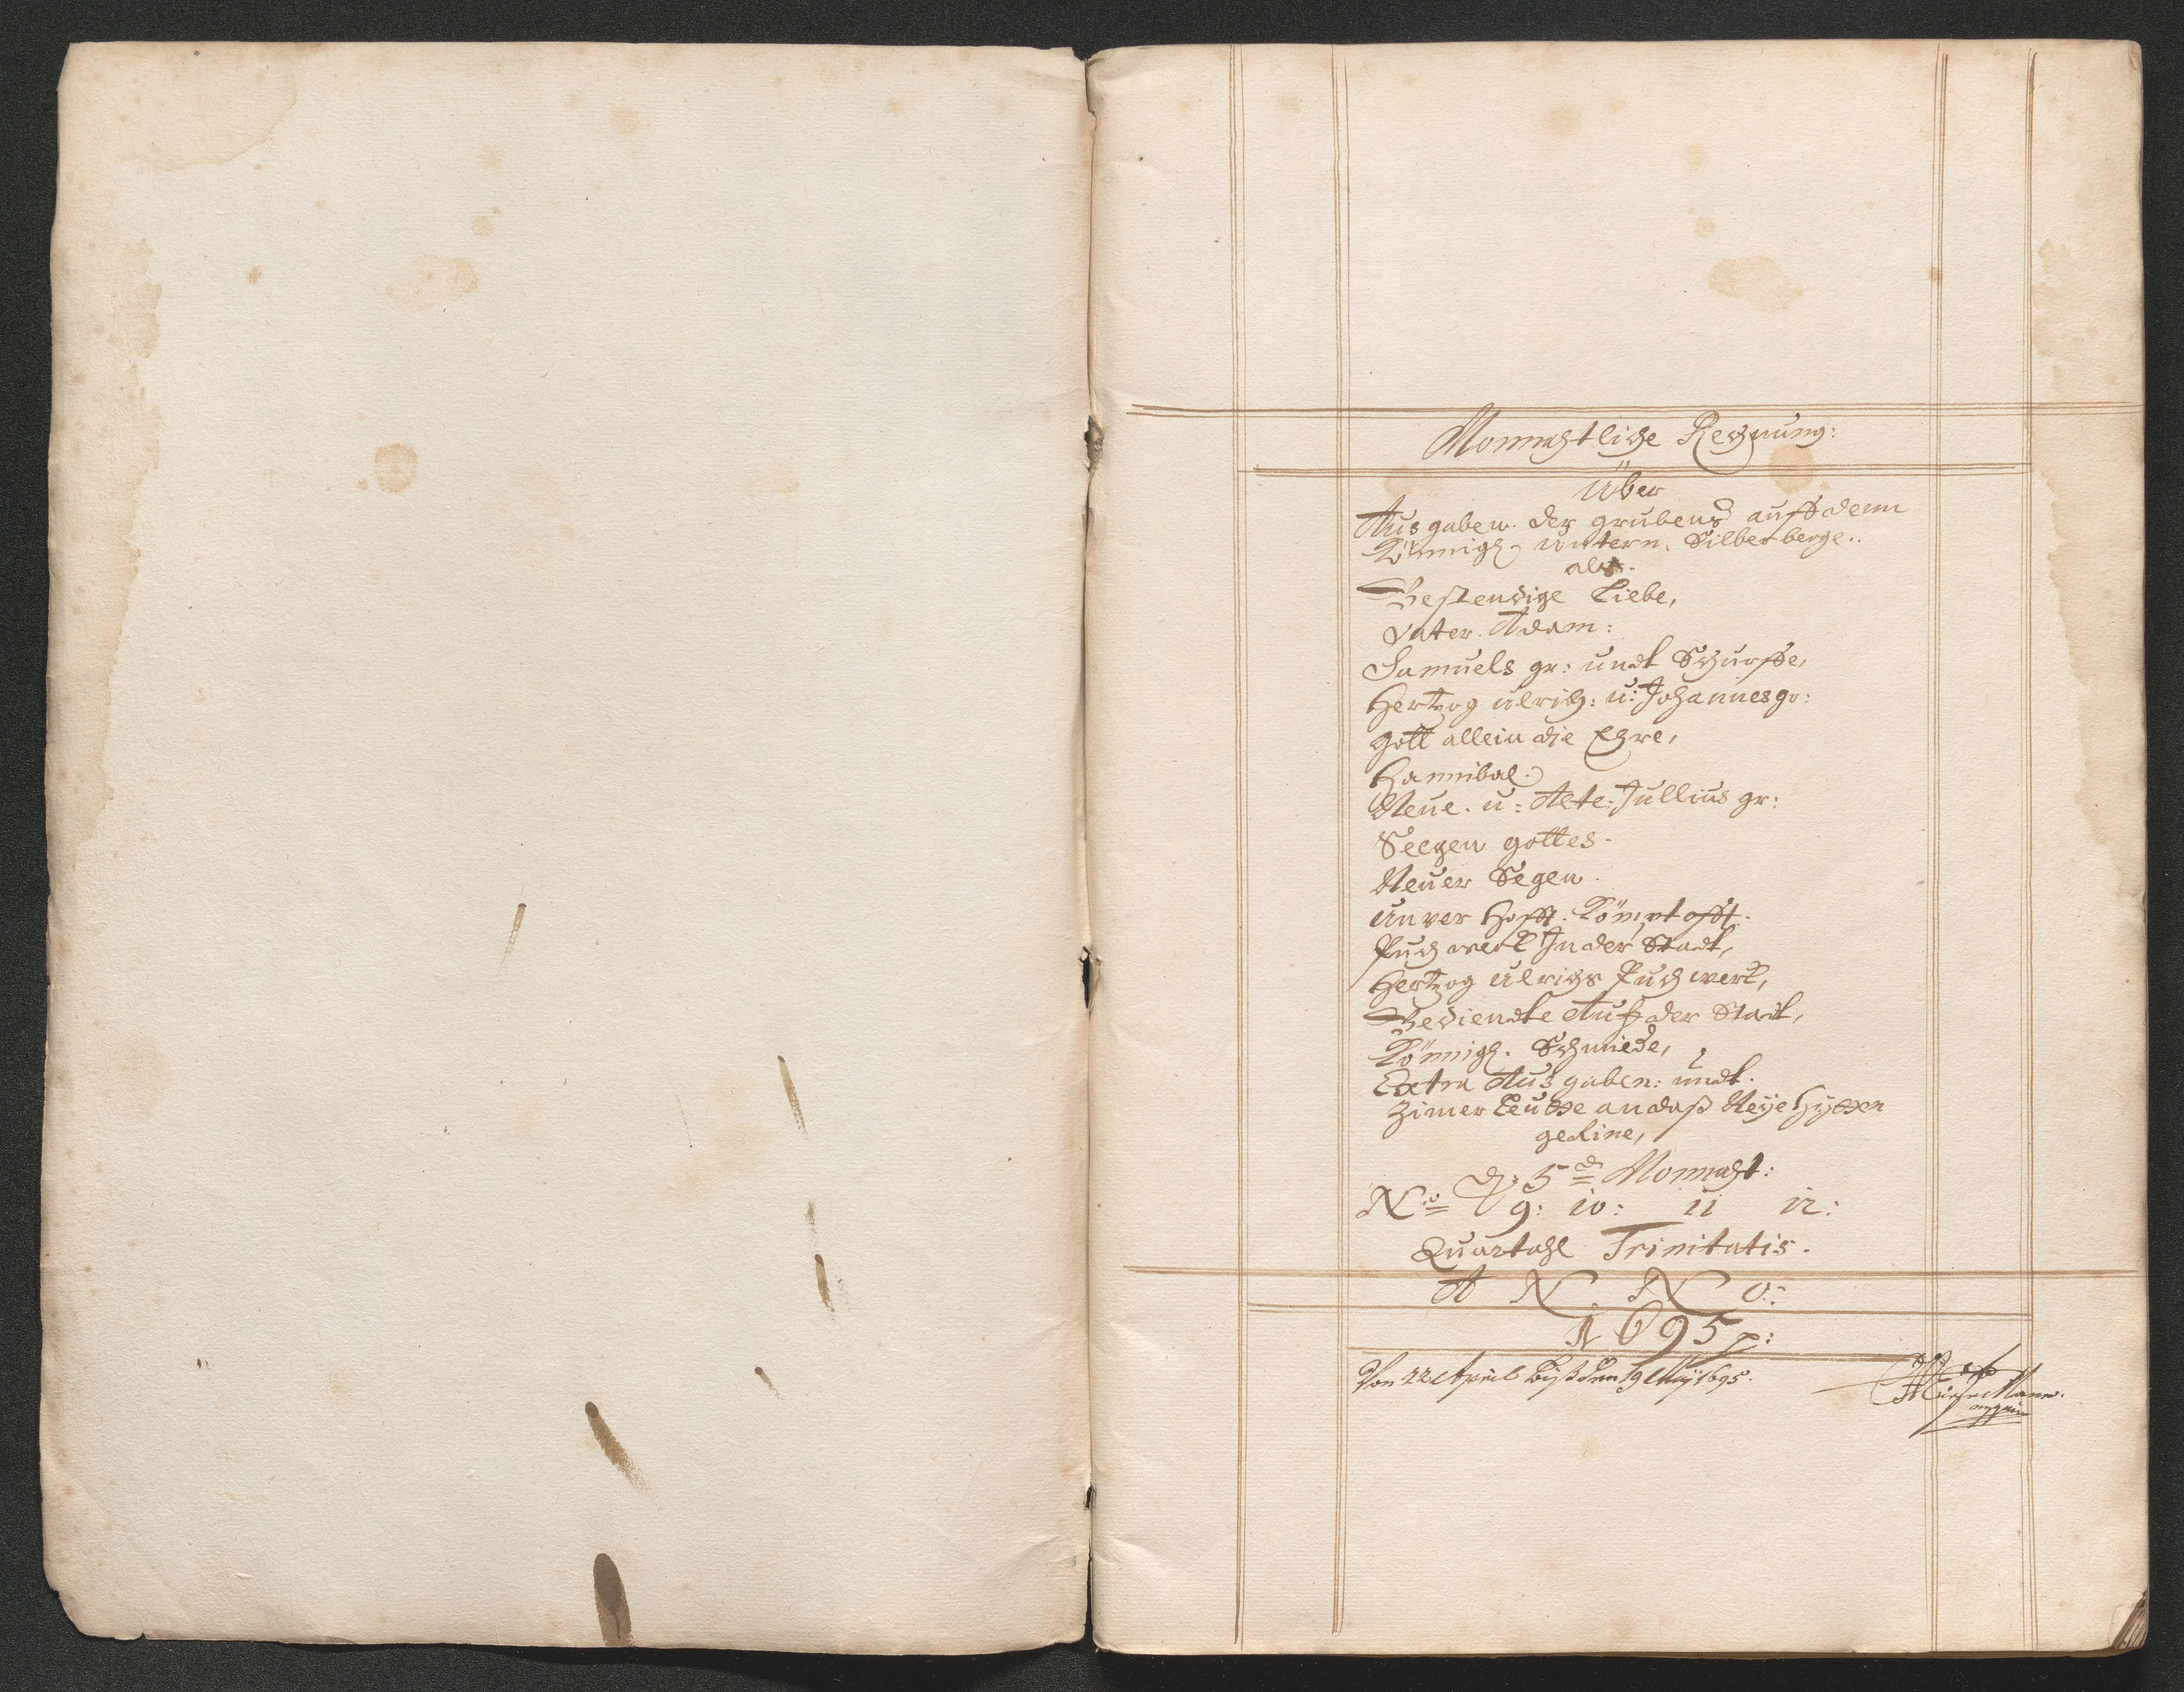 Monnahtliche Rechnung:
Über
Ausgaben. der grubens auff denn
Könnigl: untern. Silberberge..
alß.
Bestendige Liebe,
Vater. Adam:
Samuels gr: undt Schurffe,
Hertzog ulrich: u: Johannes gr:
Gott allein die Ehre,
Hannibal.
Neue. u: Alte: Jullius gr:
Seegen gottes.
Neuer Segen.
Unver hofft. Kömpt offt.
Puchwerk In der Stadt,
Hertzog Ulrichs Puchwerk,
Bediendte Auff der Stadt,
Könnigl. Schmiede,
Extra Ausgaben: undt.
Zimer Leutte an daß Neye Hytten
gerine,
d: 5 d Monnaht:
No 9: 10: 11 12:
Quartahl Trinitatis.
A N N O:
1695
Von 22 April biß den 19 Maij 1695.